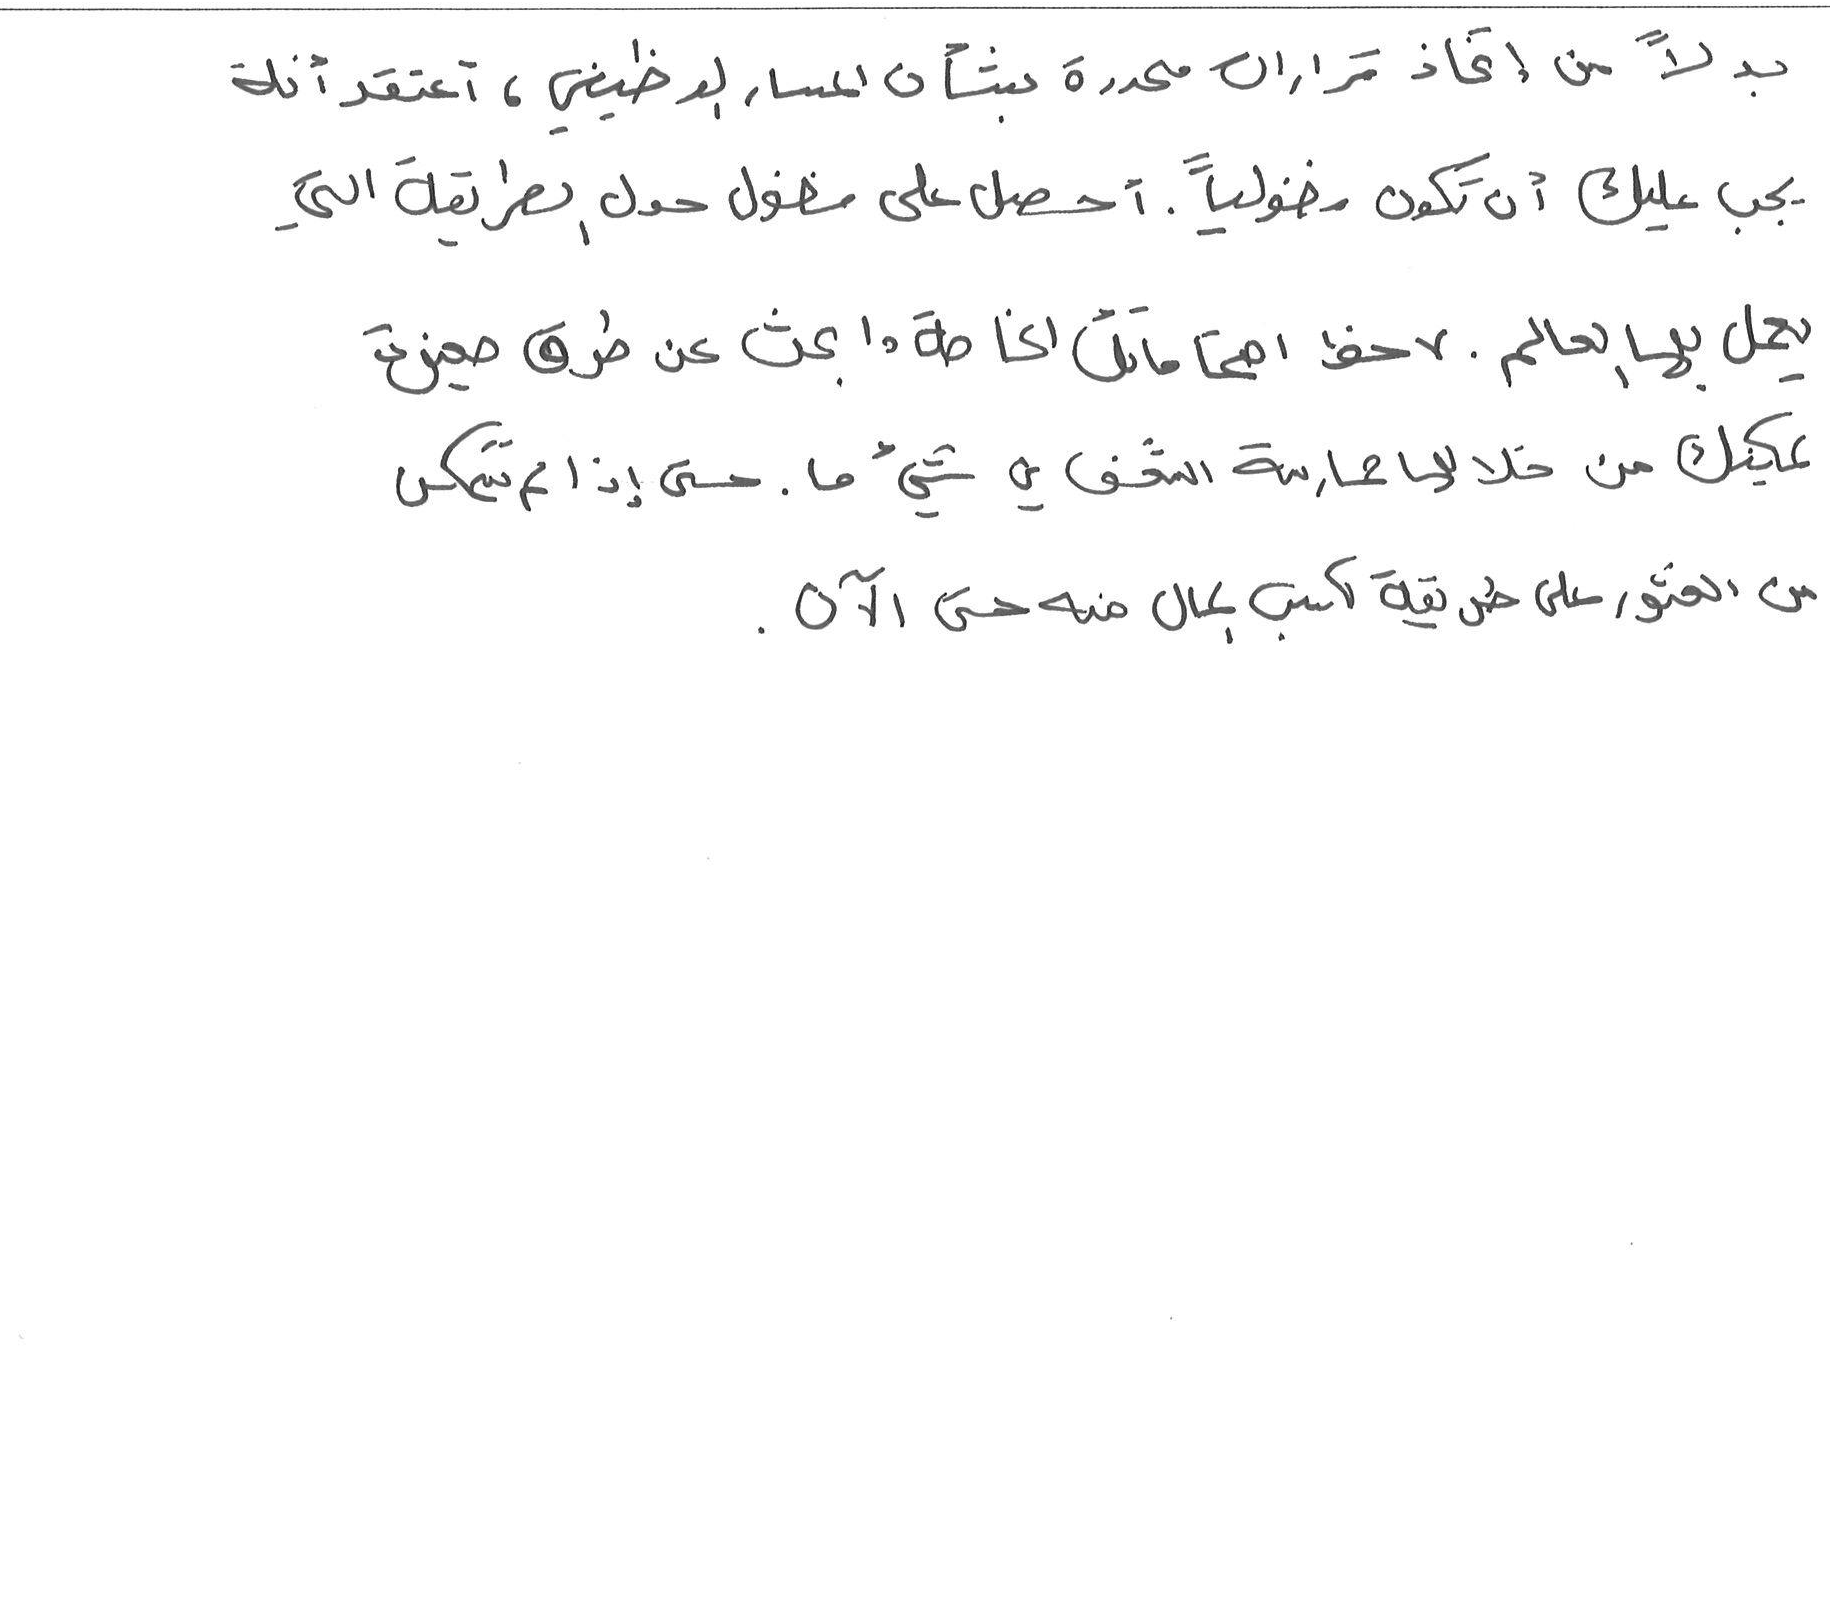 بدلاً من إتخاذ قراران محددة بشأن المسار الوظيفي ، أعتقد أنه
يجب عليك أن تكون فضولياً . أحصل على فضول حول الطريقة التي
يعمل بها العالم . لاحظ اهتماماتك الخاصة وابحث عن طرق معينة
يمكنك من خلالها ممارسة الشغف في شيء ما . حتى إذا لم تتمكن
من العثور على طريقة لكسب المال منه حتى الآن .